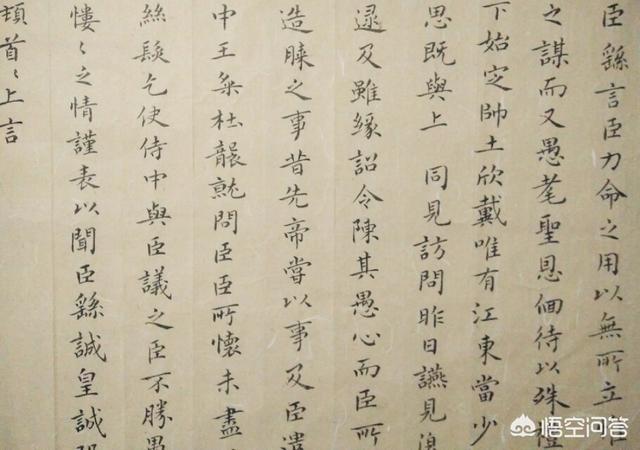 臣繇言臣力命之用以無所立
之謀而又愚耄聖恩偭待以殊禮
下始定帥土欣戴唯有江東當少
思既與上 同見訪問昨日讌見
逮及雖緣詔令陳其愚心而臣所
造膝之事昔先帝嘗以事及臣遣
中王粲杜襲就問臣臣所懷未盡
絲髮乞使侍中與臣議之臣不勝愚
慺〻之情謹表以聞臣繇誠皇誠
頓首〻上言
悟空问答